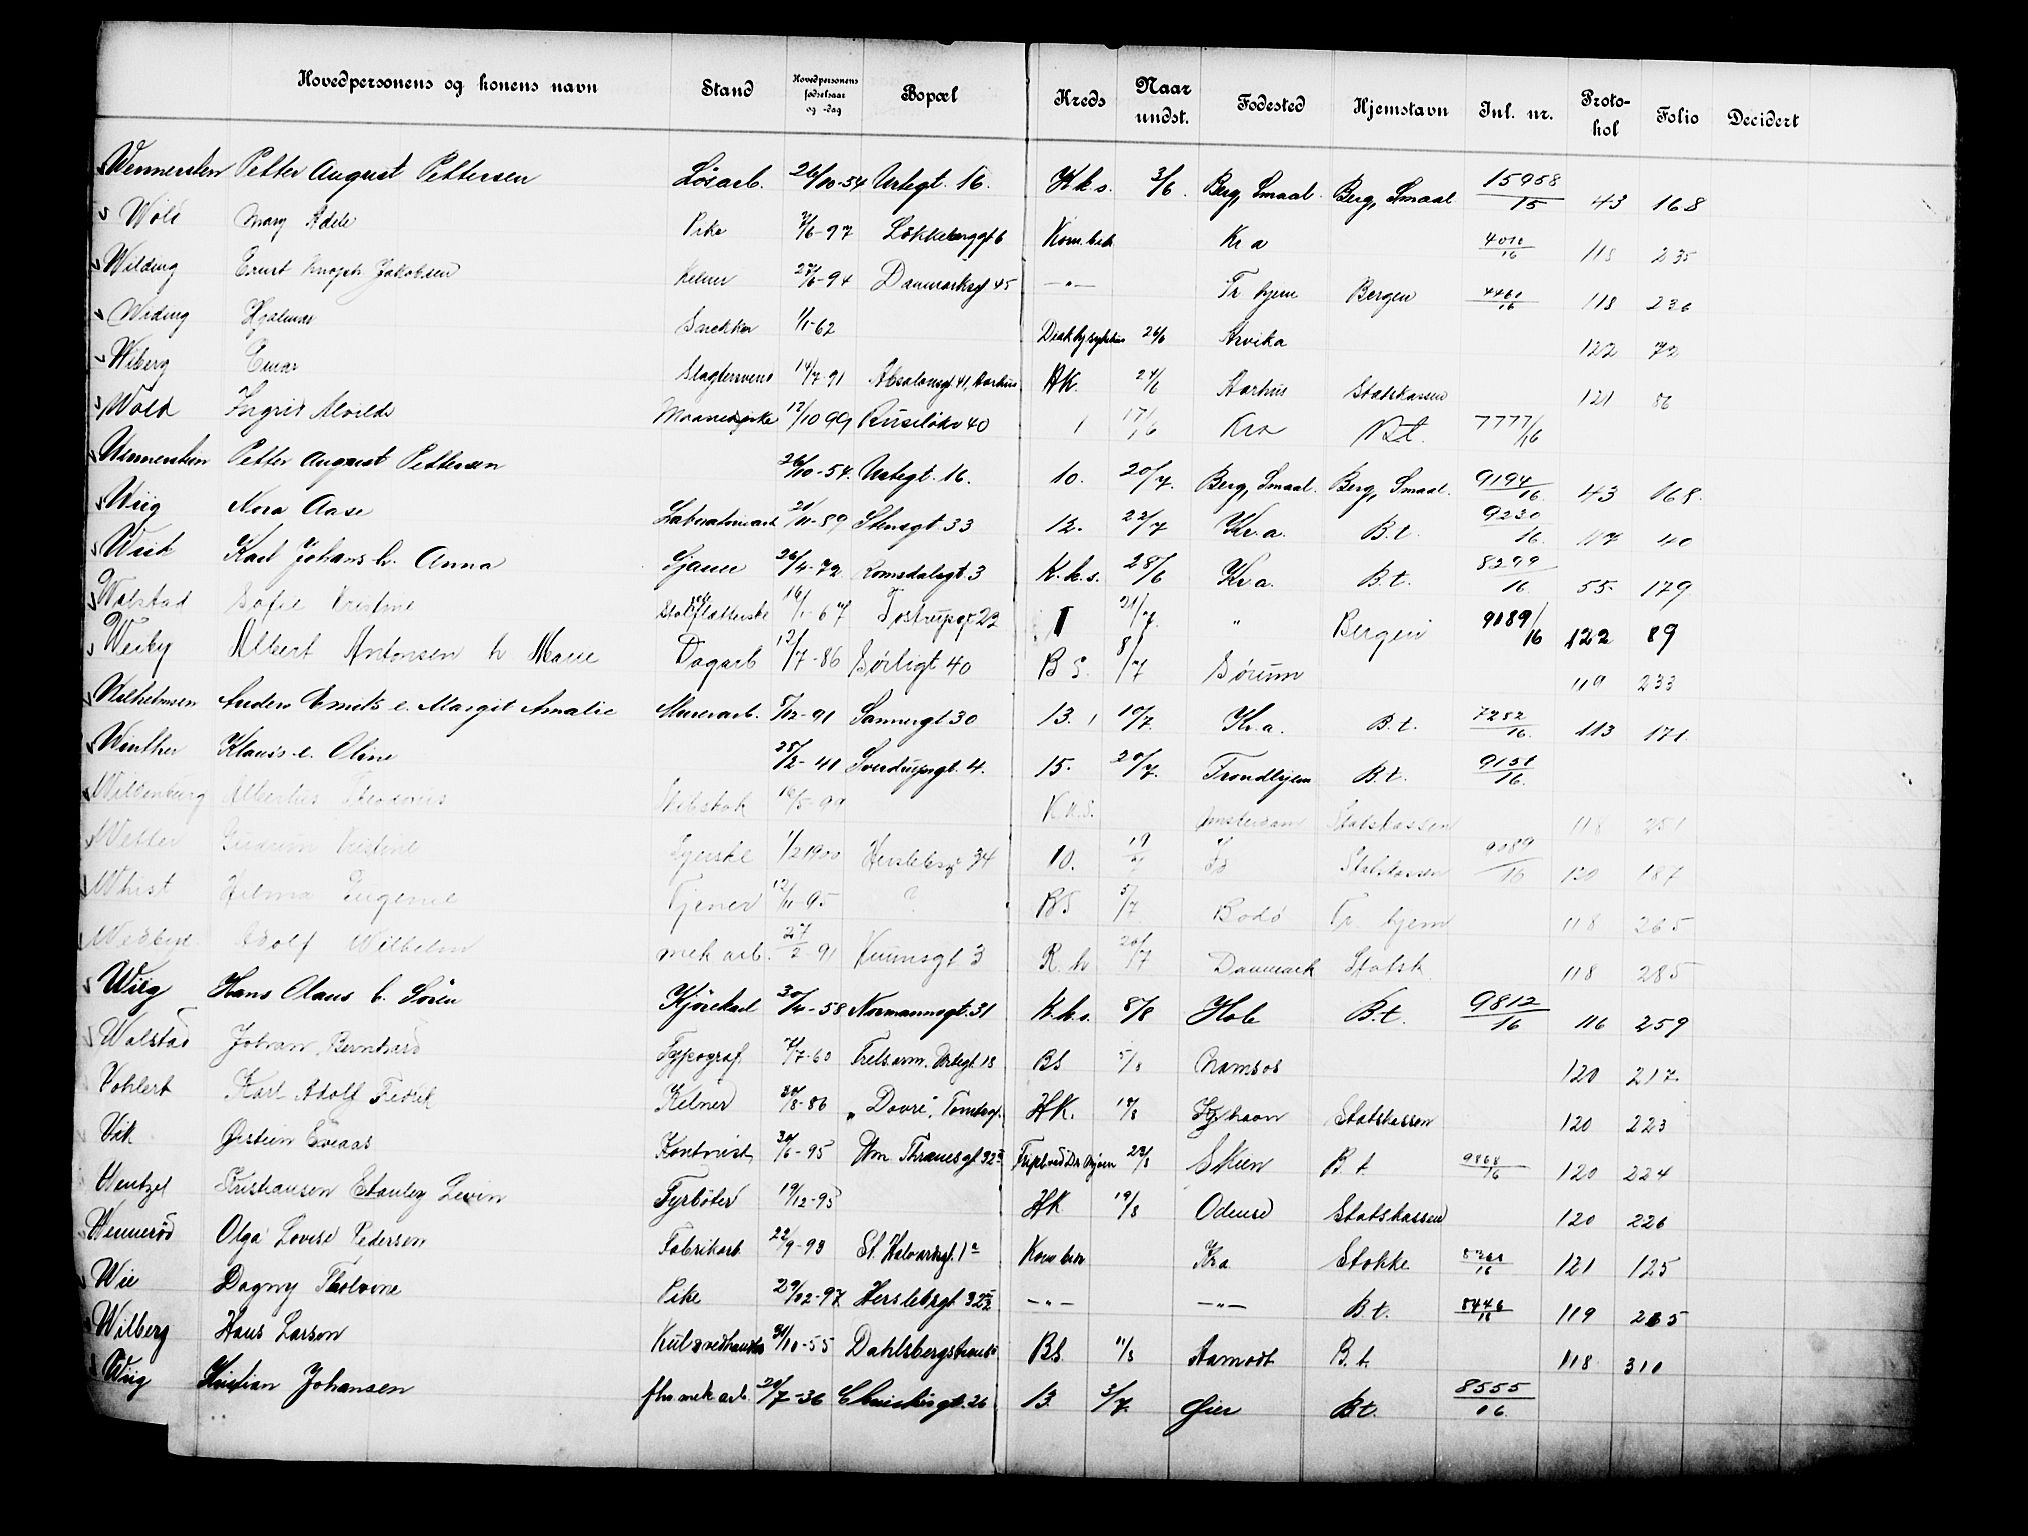 Hovedpersonens og konens navn Stand Hovedpersonens fødselsaar og -dag Bopæl Kreds Naar undst. Fødested Hjemstavn Inl. nr. Protokol Folio Decidert
Wennersten Petter August Pettersen Løsarb. 26/10-54 Urtegt. 16. K.k.s. 3/6. Berg, Smaal. Berg, Smaal 15958/15 43 168
Wold Mary Adele Pike 7/6-97 Løkkeberggt 6 Kom.bek Kra 4010/16 118 235
Wilding Ernst Jakobsen Kelner 27/6-94 Danmarksgt 45 —"— Tr.hjem Bergen 4460/16 118 236
Widing Hjalmar Snekker 1/1-62 26/6 Arvika 122 72
Wiberg Einar Slagtersvend 14/7-91 Absalonsgt 41, Aarhus HK. 24/6 Aarhus Statskassen 121 86
Wold Ingrid Alvilde 12/10 99 Ruseløkv 40 1 17/6 Kra B.t. 7777/16
Wennersten Petter August Pettersen 26/10-54. Urtegt. 16. 10. 20/7. Berg, Smaal. Berg, Smaal. 9194/16. 43 168.
Wiig Nora Aase Laboratoriearb 21/11-89 Stensgt 33 12. 22/7 Kr.a. B.t. 9230/16. 117 40
Wiik Karl Johans h. Anna Sjauer 26/4-72 Romsdalsgt. 3 K.k.s. 28/6 Kr.a. B.t. 8299/16. 55. 179
Walstad Sofie Kristine 16/1-67 Tostrupsgt 22 I 21/7. " Bergen 9189/16 122 89
Wesby Albert Antonsen h Marie Dagarb 12/7-86 Børligt 40 B S. 8/7 Sørum 119 233
Wilhelmsen Anders Emil e. Margit Amalie Murerarb. 5/12-91 Sannergt 30 13. 10/7. Kr.a. B.t. 7252/16. 113 171.
Winther Klaus e. Oline 25/2-41 Sverdrupsgt. 4. 15. 20/7. Trondhjem B.t. 9151/16.
Willenburg Albertus Theodorus 16/5-90 K.k.S. Amsterdam Statskassen 118 251
Wetter Gudrun Kristine Syerske 1/2 1900 Herslebsgt 34 10. 19/7 Statskassen 9089/16 120 187
Whist Hilma Eugenie Tjener 12/11 95 ? BS 5/7 Bodø Tr hjem 118 265
Adolf Wilhelm mek arb. 27/2-91 R.h 20/7 Danmark Statsk 118 285
Wiig Hans Olaus h. Søren Kjørekarl 30/4-58 Normannsgt. 31 K.k.s. 8/8 Hole B.t. 9812/16 116 259
Walstad Johan Bernhard Typograf. 7/7-60 Frels.arm. Urtegt. 18 BS 5/8 Namsos 120 217.
Vohlert Karl Adolf Fredrik Kelner 30/8-86 "Dovre", Tomtegt. HK. 18/8 Kjøbhavn Statskassen 120 223
Vik Øistein Kontorist 30/6-95 Wm Thranesgt 32 22/8 Skien B t 9868/16 120 224
Wentzel Kristiansen Stanley Levin Fyrbøter 19/12-95 HK 19/8 Odense Statskassen 120 226
Wennerød Olga Lovise Pedersen Fabrikarb 22/9-93 St. Halvardsgt. 1a Kom bek Kra Stokke 8268/16 121 125
Wie Dagny Pike 29/12-97 Herslebsgt 32 —"— —"— B.t. 8446/16 119 265
Wilberg Hans Larsen Kul & vedhandler 31/10-55 Dahlsbergstien BS. 11/8 Aamodt B.t. 118 310
Wiig Kristian Johansen fhv. mek arb. 20/7-36 13. 3/7. Øier Bt. 8555/06.